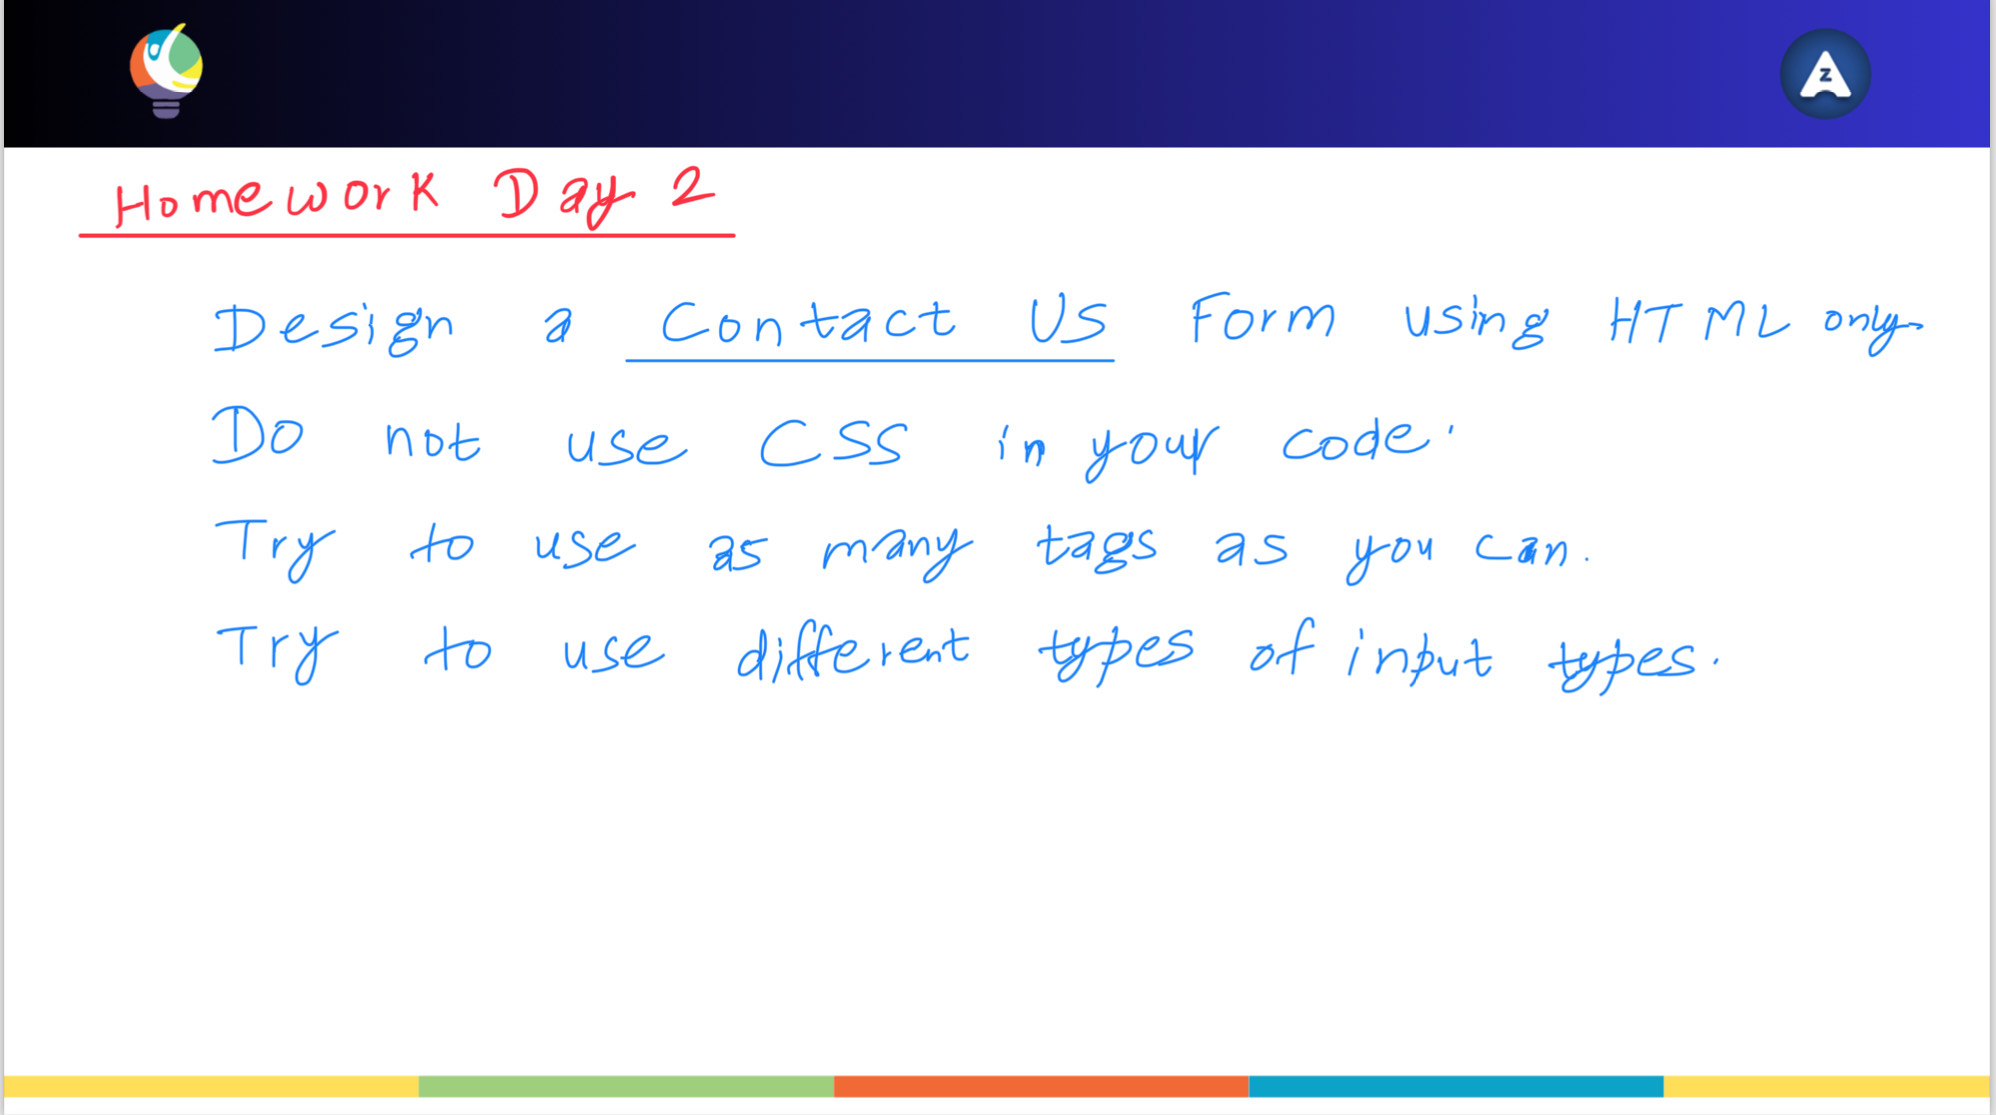 Z
Homework Day 2
Design a Contact Us Form using HTML only.
Do not use CSS in your code.
Try to use as many tags as you can.
Try to use different types of input types.